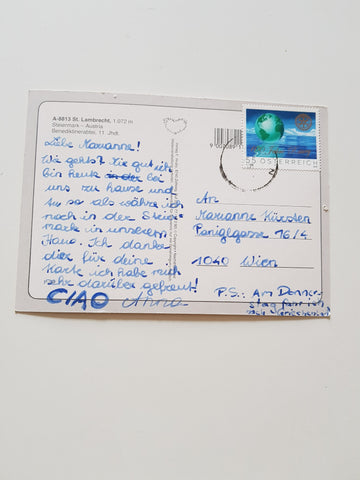 A-8813 St. Lambrecht, 1.072 m
Steiermark – Austria
Benediktinerabtei, 11. Jhdt.
Liebe Marianne!
Wie gehts? Mir gut ich
bin heute in der bei
uns zu hause und
tu so als währe ich
noch in der Steier-
mark in unserem
Haus. Ich danke
dier für deine
Karte ich habe mich
sehr darüber gefreut!
CIAO Anna
55 ÖSTERREICH
An
Marianne
Paniglgasse 16/4
1040 Wien
P.S.: Am Donner-
stag fahr ich